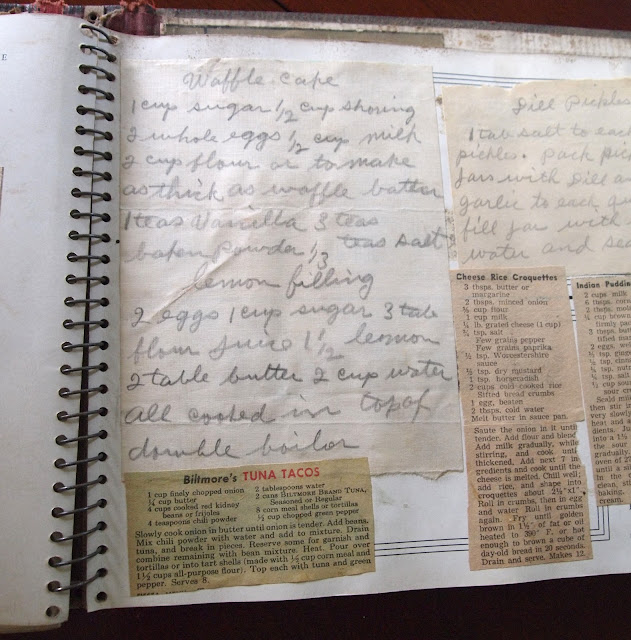 E
Waffle Cake
1 cup sugar 1/2 cup shoning
2 whole eggs 1/2 cup milk
2 cup flour or to make
as thick as waffle batter
1 teas Vanilla 3 teas
baken powder 1/3 teas salt
lemon filling
2 eggs 1 cup sugar 3 table
flour juice 1 1/2 lemon
2 table butter 2 cup water
all cooked in top of
double boiler
Biltmore's TUNA TACOS
1 cup finely chopped onion
1/4 cup butter
4 cups cooked red kidney
beans or frijoles
4 teaspoons chili powder
2 tablespoons water
2 cans BILTMORE BRAND TUNA,
Seasoned or Regular
8 corn meal shells or tortillas
1/2 cup chopped green pepper
Slowly cook onion in butter until onion is tender. Add beans.
Mix chili powder with water and add to mixture. Drain
tuna, and break in pieces. Reserve some for garnish and
combine remaining with bean mixture. Heat. Pour over
tortillas or into tart shells (made with 1/2 cup corn meal and
1 1/2 cups all-purpose flour). Top each with tuna and green
pepper. Serves 8.
Dill Pickles
1 tab salt to each
pickles. pack pic
Jars with Dill an
garlic to each qu
fill jar with
water and sea
Cheese Rice Croquettes
3 tbsps. butter or
margarine
2 tbsps. minced onion
cup flour
1 cup milk
1/4 lb. grated cheese (1 cup)
tsp. salt
Few grains pepper
Few grains paprika
tsp. Worcestershire
sauce
tsp. dry mustard
1 tsp. horseradish
2 cups cold cooked rice
Sifted bread crumbs
1 egg, beaten
2 tbsps. cold water
Melt butter in sauce pan.
Saute the onion in it until
tender. Add flour and blend.
Add milk gradually, while
stirring, and cook until
thickened. Add next 7 in-
gredients and cook until the
cheese is melted. Chill well,
add rice, and shape into
croquettes about 2½"x1".
Roll in crumbs, then in egg
and water. Roll in crumbs
again. Fry until golden
brown in 1½" of fat or oil
heated to 390° F. or hot
enough to brown a cube of
day-old bread in 20 seconds.
Drain and serve. Makes 12.
Indian Puddin
2 cups milk